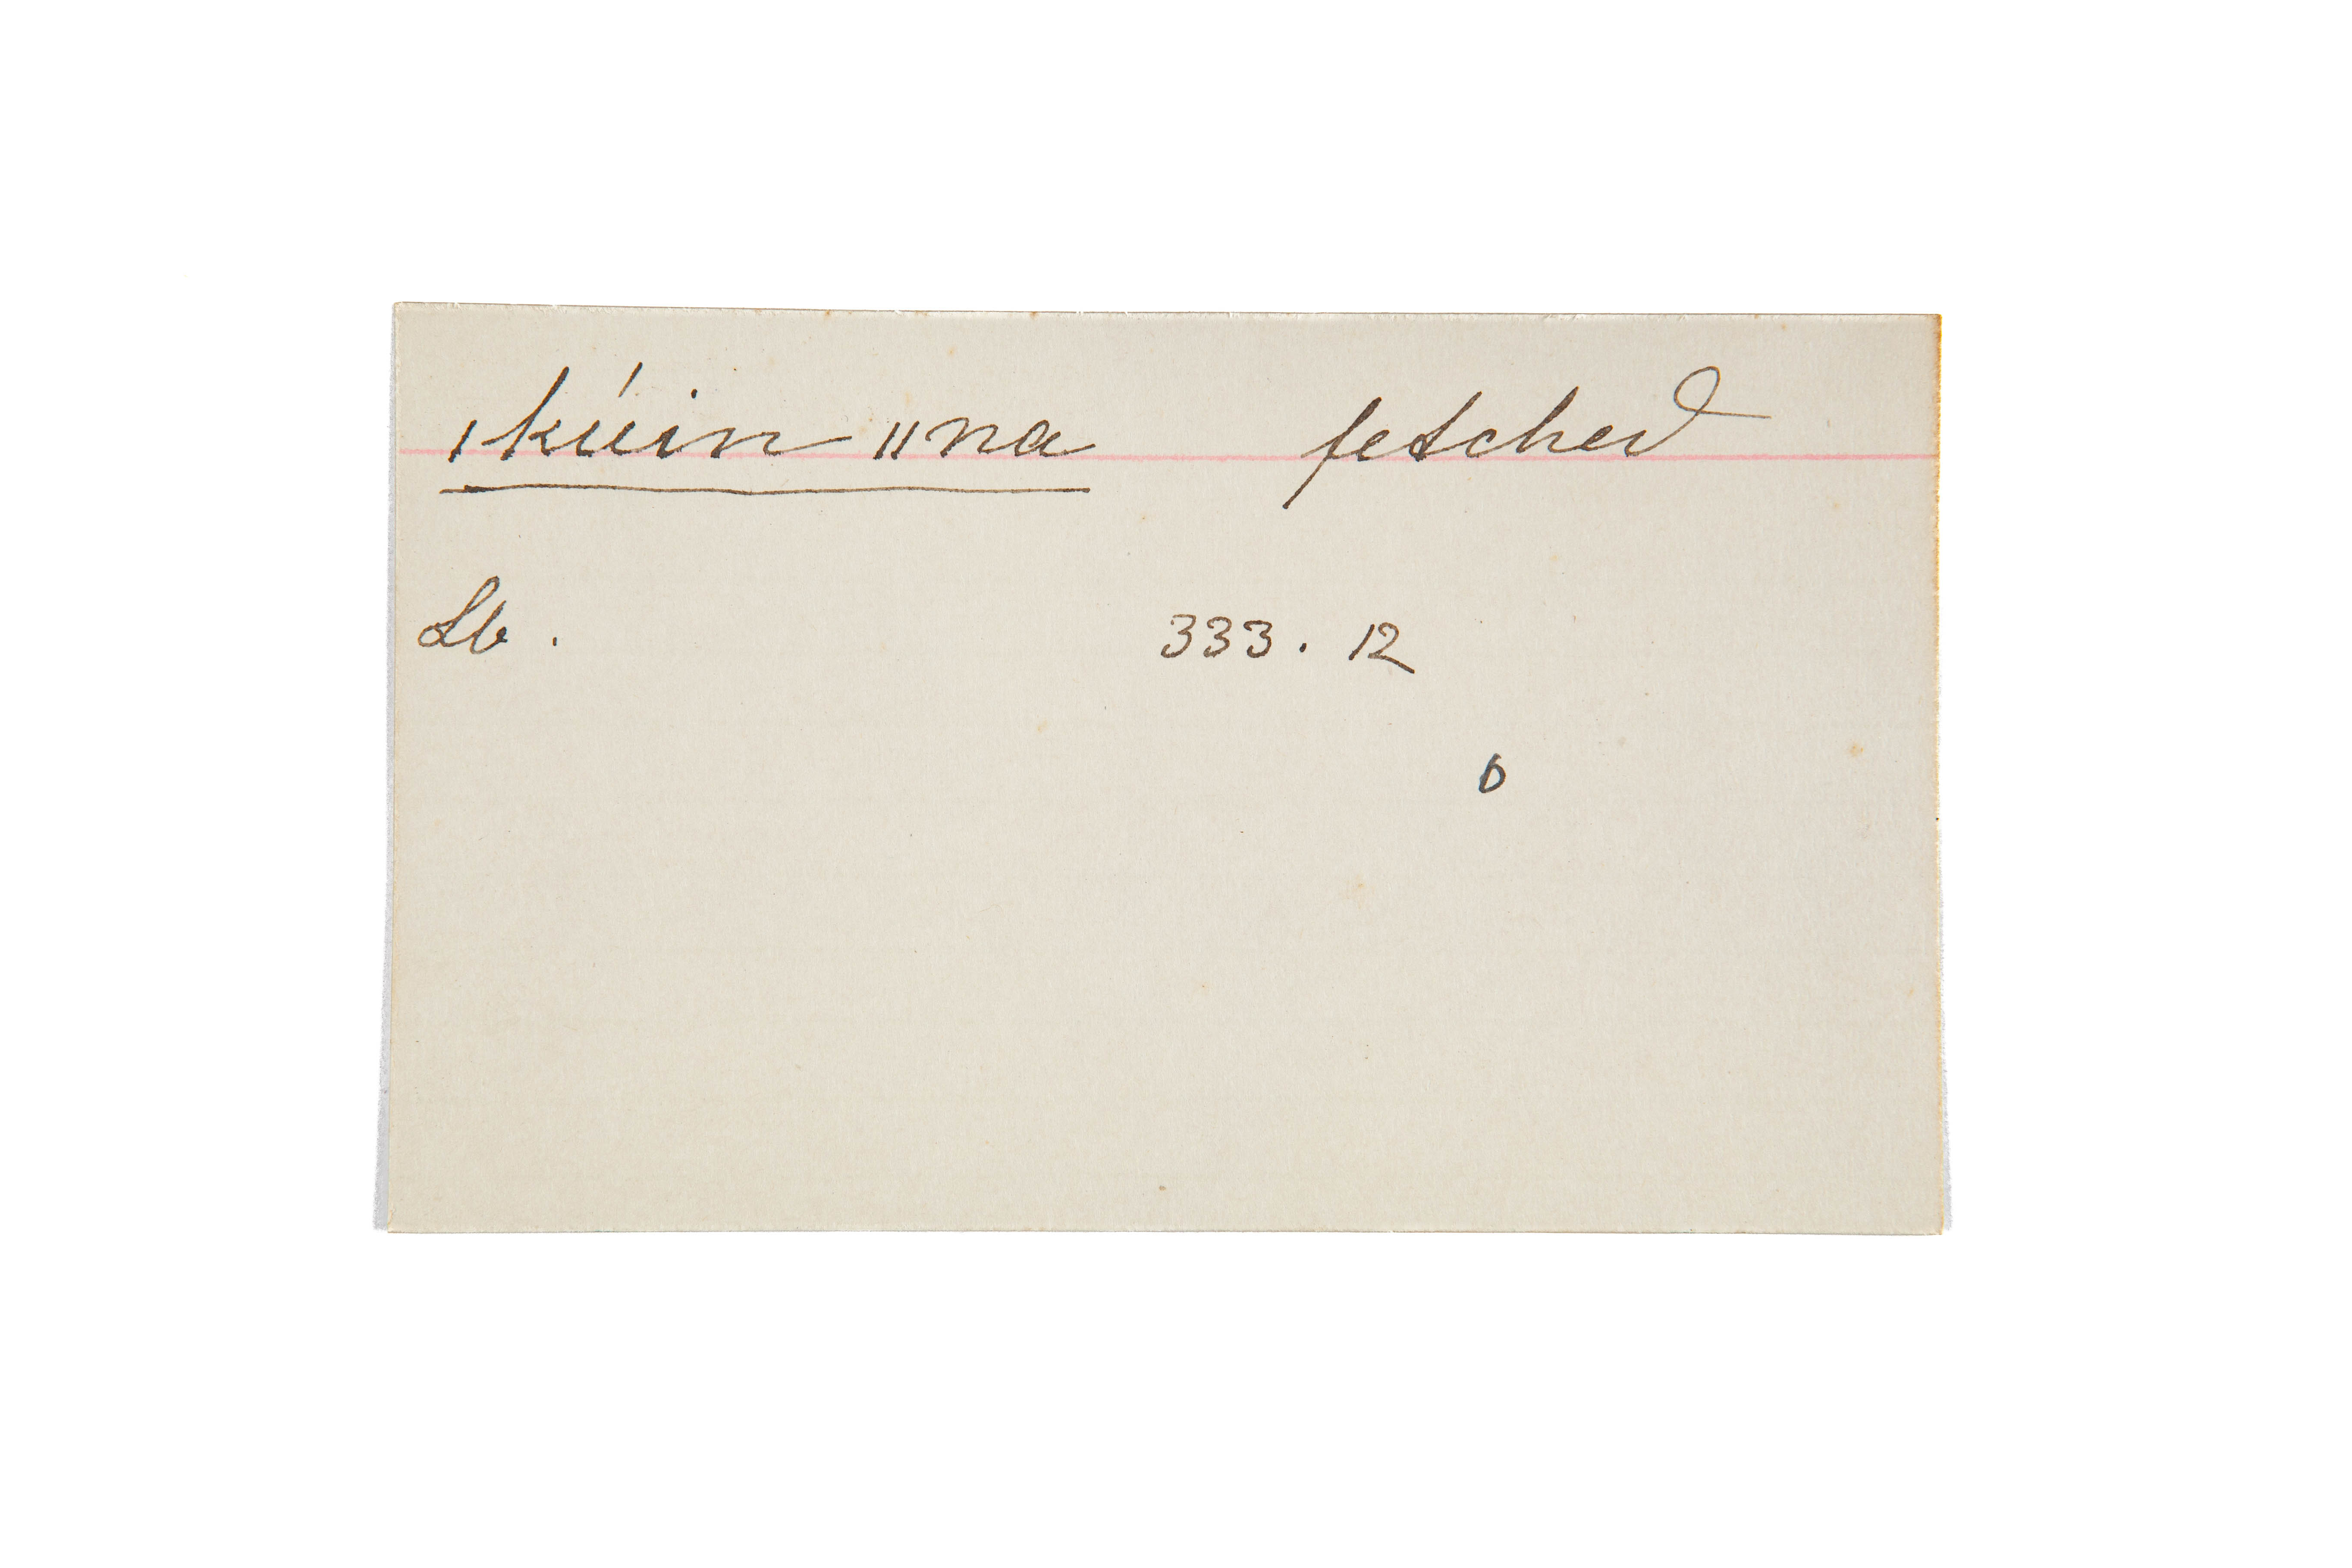 ǀkúin ǁna fetched
Lb. 333. 12
0